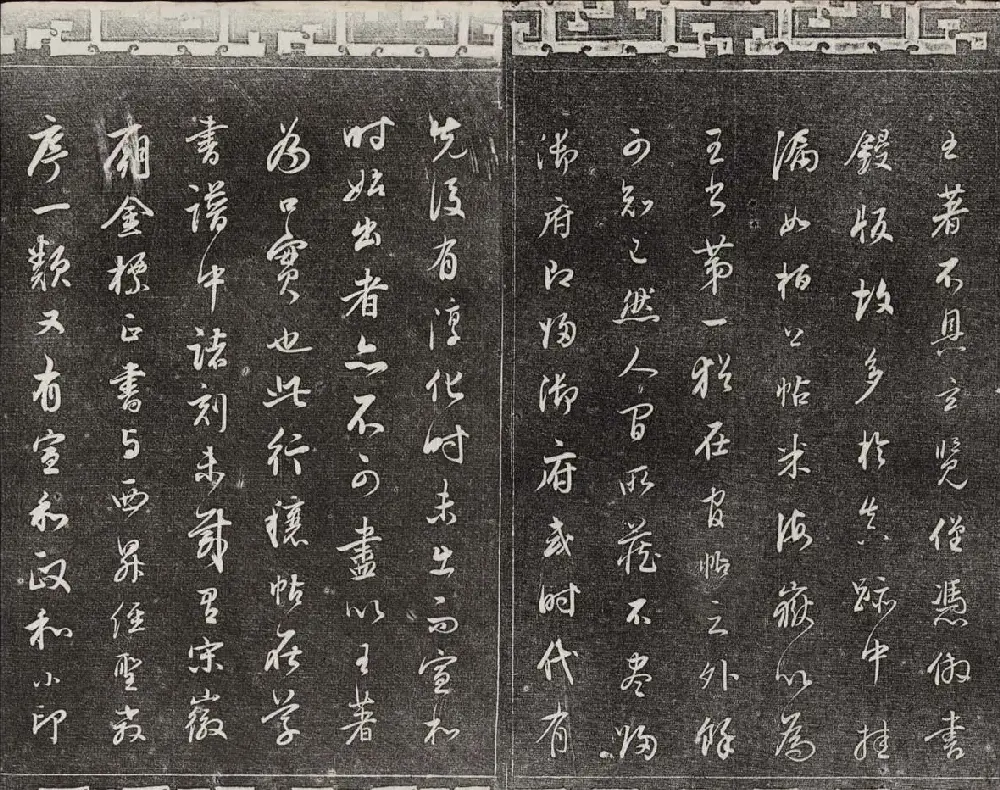 王著不具玄覽僅憑倣書
鋟版故多於真跡中挂
漏如桓公帖米海嶽以為
王書第一猶在官帖之外餘
可知已然人間所藏不盡歸
御府即歸御府或時代有
先後有淳化時未出而宣和
時始出者亦不可盡以王著
為口實也此行穰帖在草
書譜中諸刻未載宋徽
廟金標正書與西昇經聖教
序一類又有宣和政和小印